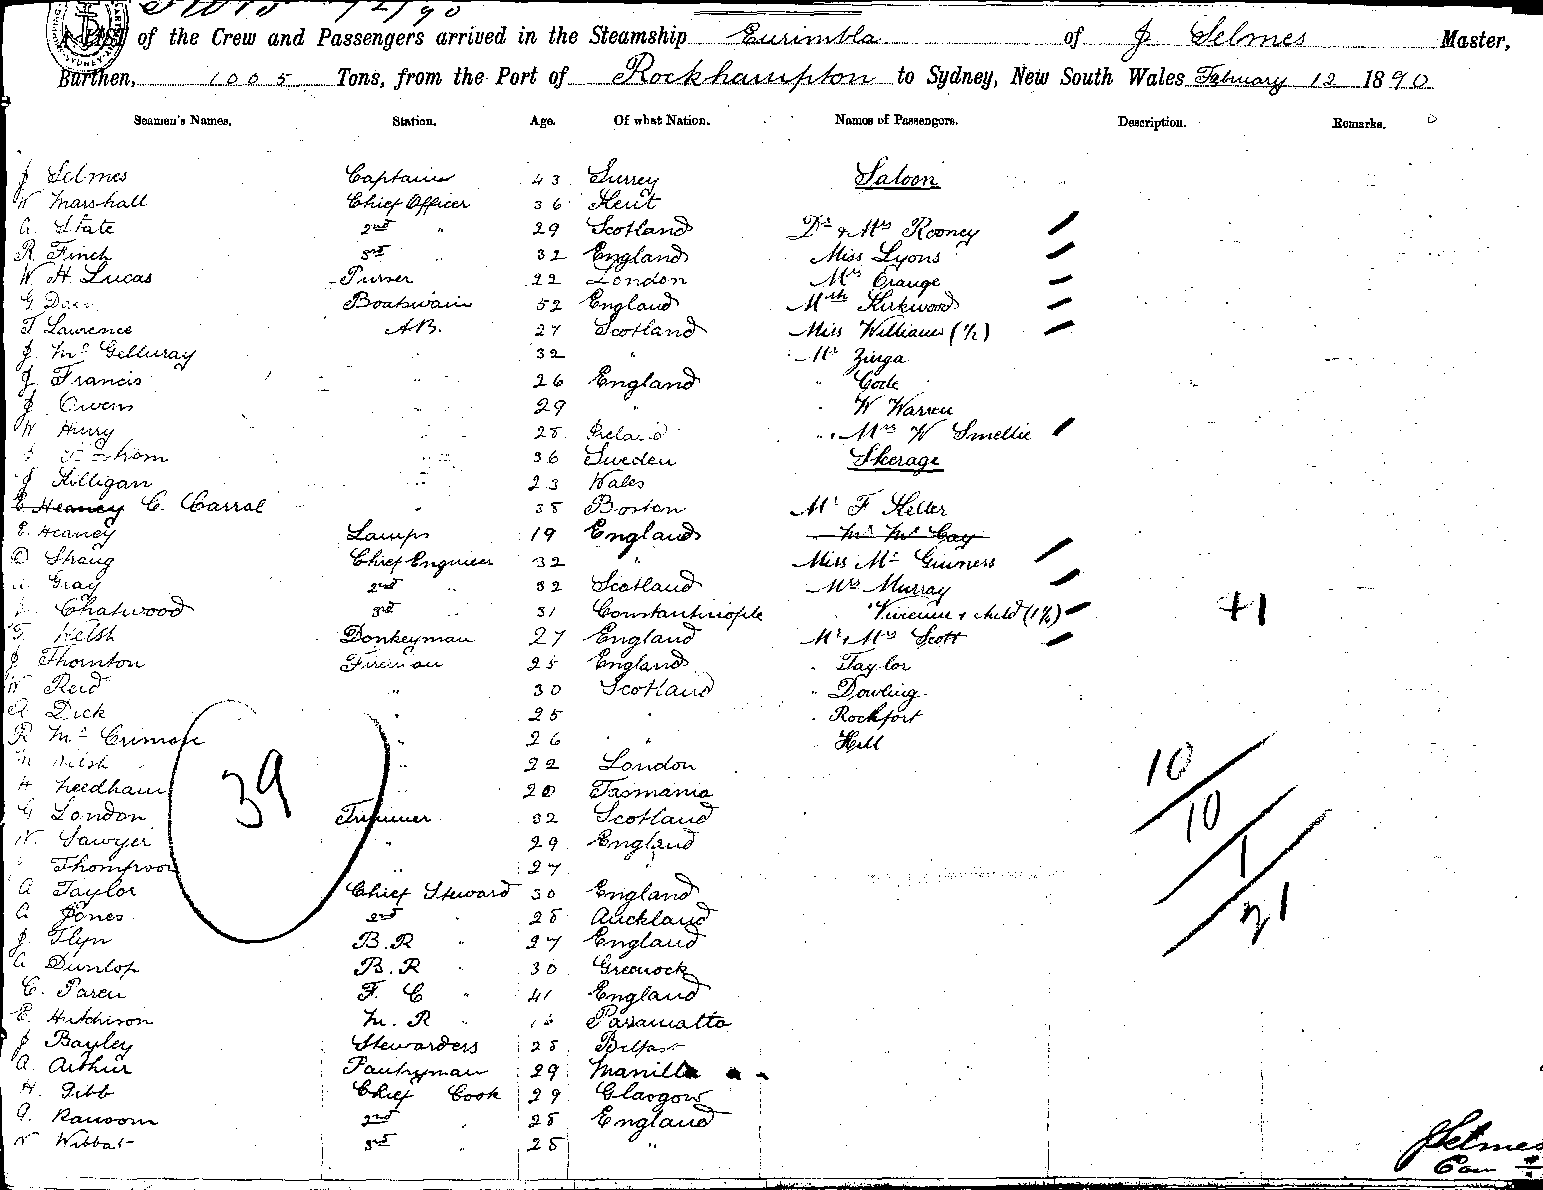 12/2/90
List of the Crew and Passengers arrived in the Steamship Eurimbla of J Selmes Master,
Burthen, 1005 Tons, from the Port of Rockhampton to Sydney, New South Wales February 12 1890
Seamen's Names. Station. Age. Of what Nation. Names of Passengers. Description. Remarks.
J Selmes Captain 43 Surrey Saloon
W Marshall Chief Officer 36 Kent
A. State 2nd " 29 Scotland Dr & Mrs Rooney
R. Finch 3rd " 32 England Miss Lyons
W. H. Lucas Purser 22 London Mrs
G Boatswain 52 England Kirkwood
F Laurence A.B. 27 Scotland Miss Williams (1/2)
J. " 32 " Mr Zinga
J Francis " 26 England "
J. Owens " 29 " " W Warren
W Hurry " 28 Ireland " Mrs W Smellie
" 36 Sweden Steerage
J Killigan " 23 Wales
E Heaney C. Carral " 38 Boston Mr F Keller
E. Heaney Lamps 19 England Mr McCay
Chief Engineer 32 " Miss McGuiness
Gray 2nd " 32 Scotland Mrs Murray
Chatwood 3rd " 31 Constantinople " & child (1 1/2) +1
Welsh Donkeyman 27 England Mr & Mrs Scott
J Thornton Fireman 25 England " Taylor
W Reid " 30 Scotland " Dowling
A Dick " 25 " " Rockfort
R " 26 " Hill
Welsh " 22 London 10
H Needham " 20 Tasmania
39
G London Trimmer 32 Scotland 10
W. Sawyer " 29 England 1
Thompson " 27 "
A Taylor Chief Steward 30 England
A Jones 2nd " 28 Auckland 21
J. Flyn B.R " 27 England
A Dunlop B.R " 30 Greenock
C. Paren F. C " 41 England
E. Hutchison M. R " Parramatta
J Bayley Stewardess 28 Belfast
A. Arthur Pantryman 29 Manilla
H. Gibb Chief Cook 29 Glasgow
A. Ransom 2nd " 28 England
3rd " 25 "
J Selmes